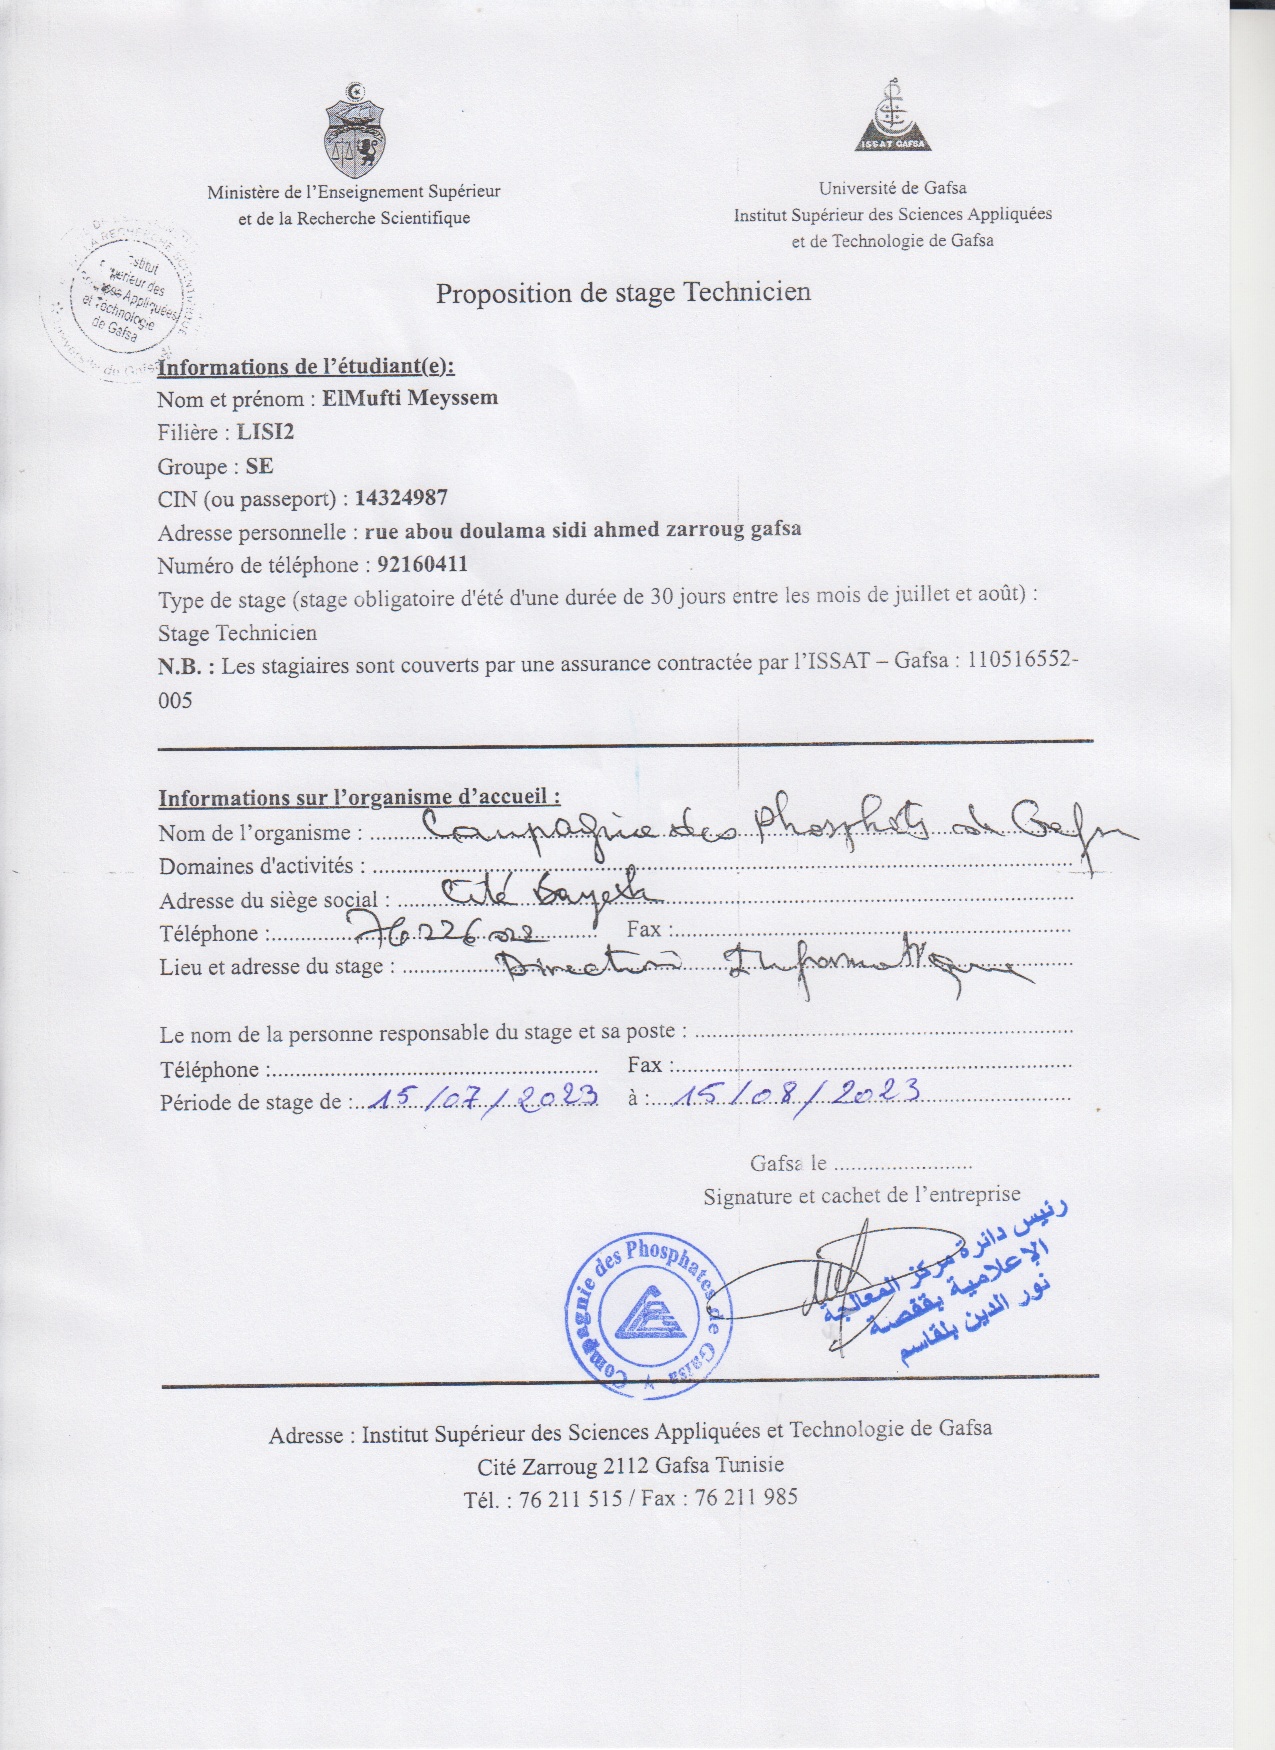 ISSAT GAFSA
Ministère de l'Enseignement Supérieur
et de la Recherche Scientifique
Université de Gafsa
Institut Supérieur des Sciences Appliquées
et de Technologie de Gafsa
LA RECHERCHE SCIENTIFIQUE
Université de Gafsa
et Technologie
de Gafsa
Proposition de stage Technicien
Informations de l'étudiant(e):
Nom et prénom : ElMufti Meyssem
Filière : LISI2
Groupe : SE
CIN (ou passeport) : 14324987
Adresse personnelle : rue abou doulama sidi ahmed zarroug gafsa
Numéro de téléphone : 92160411
Type de stage (stage obligatoire d'été d'une durée de 30 jours entre les mois de juillet et août) :
Stage Technicien
N.B. : Les stagiaires sont couverts par une assurance contractée par l'ISSAT – Gafsa : 110516552-
005
Informations sur l'organisme d'accueil :
Nom de l'organisme : Compagnie des Phosphates de Gafsa
Domaines d'activités :
Adresse du siège social : Cité Bayech
Téléphone : 76 226 022 Fax :
Lieu et adresse du stage : Direction Informatique
Le nom de la personne responsable du stage et sa poste :
Téléphone : Fax :
Période de stage de : 15/07/2023 à : 15/08/2023
Gafsa le
Signature et cachet de l'entreprise
Compagnie des Phosphates de Gafsa
رئيس دائرة مركز المعالجة
الإعلامية بقفصة
نور الدين بلقاسم
Adresse : Institut Supérieur des Sciences Appliquées et Technologie de Gafsa
Cité Zarroug 2112 Gafsa Tunisie
Tél. : 76 211 515 / Fax : 76 211 985